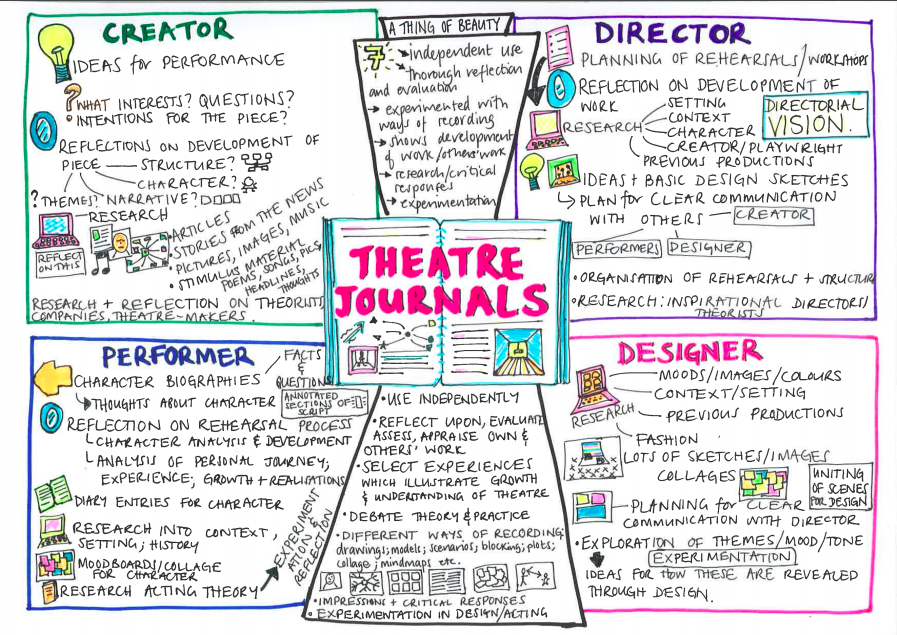 CREATOR
IDEAS for PERFORMANCE
? WHAT INTERESTS? QUESTIONS?
INTENTIONS FOR THE PIECE?
REFLECTIONS ON DEVELOPMENT OF
PIECE
STRUCTURE?
CHARACTER?
? THEMES? NARRATIVE?
RESEARCH
REFLECT
ON THIS
• ARTICLES
• STORIES FROM THE NEWS
• PICTURES, IMAGES, MUSIC
• STIMULUS MATERIAL
POEMS, SONGS, PICS,
HEADLINES,
THOUGHTS
RESEARCH + REFLECTION ON THEORISTS
COMPANIES, THEATRE-MAKERS.
A THING OF BEAUTY
7
independent use
thorough reflection
and evaluation
experimented with
ways of recording
shows development
of work/others' work
research/critical
responses
experimentation
DIRECTOR
PLANNING OF REHEARSALS/WORKSHOPS
REFLECTION ON DEVELOPMENT OF
WORK
RESEARCH
SETTING
CONTEXT
CHARACTER
CREATOR/PLAYWRIGHT
PREVIOUS PRODUCTIONS
DIRECTORIAL
VISION.
IDEAS + BASIC DESIGN SKETCHES
PLAN for CLEAR COMMUNICATION
WITH OTHERS
CREATOR
PERFORMERS
DESIGNER
• ORGANISATION OF REHEARSALS + STRUCTURE
• RESEARCH: INSPIRATIONAL DIRECTORS/
THEORISTS
THEATRE
JOURNALS
PERFORMER
CHARACTER BIOGRAPHIES
FACTS
&
QUESTIONS
THOUGHTS ABOUT CHARACTER
ANNOTATED
SECTIONS OF
SCRIPT
REFLECTION ON REHEARSAL PROCESS
CHARACTER ANALYSIS & DEVELOPMENT
ANALYSIS OF PERSONAL JOURNEY;
EXPERIENCE; GROWTH + REALISATIONS
DIARY ENTRIES FOR CHARACTER
RESEARCH INTO CONTEXT,
SETTING; HISTORY
MOODBOARDS/COLLAGE
FOR CHARACTER
RESEARCH ACTING THEORY
EXPERIMENT
ATION &
REFLECTION
• USE INDEPENDENTLY
• REFLECT UPON, EVALUATE
ASSESS, APPRAISE OWN &
OTHERS' WORK
• SELECT EXPERIENCES
WHICH ILLUSTRATE GROWTH
& UNDERSTANDING OF THEATRE
• DEBATE THEORY & PRACTICE
• DIFFERENT WAYS OF RECORDING:
drawings; models; scenarios; blocking; plots;
collage; mindmaps etc..
• IMPRESSIONS + CRITICAL RESPONSES
• EXPERIMENTATION IN DESIGN/ACTING
DESIGNER
RESEARCH
MOODS/IMAGES/COLOURS
CONTEXT/SETTING
PREVIOUS PRODUCTIONS
FASHION
LOTS OF SKETCHES/IMAGES
COLLAGES
UNITING
OF SCENES
FOR DESIGN
PLANNING for CLEAR
COMMUNICATION WITH DIRECTOR
• EXPLORATION OF THEMES/MOOD/TONE
EXPERIMENTATION
IDEAS FOR HOW THESE ARE REVEALED
THROUGH DESIGN.